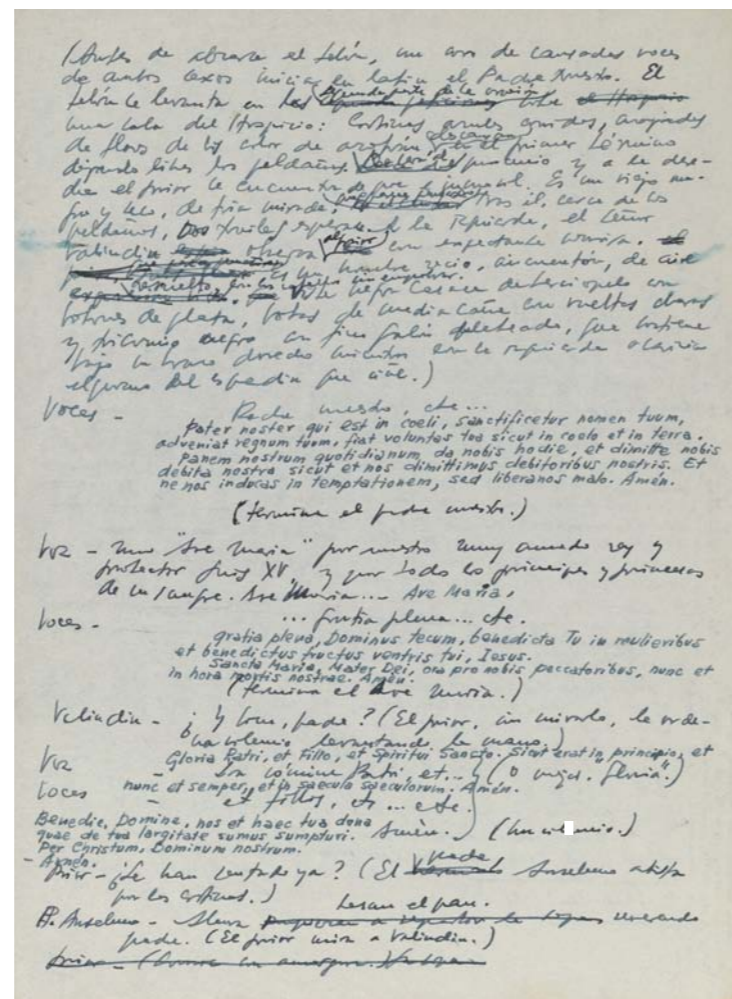 (Antes de alzarse el telón, un coro de cansadas voces
de ambos sexos inicia en latín el Padre Nuestro. El
telón se levanta en las segunda parte de la oración sobre el Hospicio
una sala del Hospicio: Cortinas azules
de flores de lis color de azafrán el primer término
dejando libres los peldaños. proscenio y a la dere-
cha el prior se encuentra de pie inmóvil. Es un viejo ma-
gro y seco, de fría mirada. Tras él, cerca de los
peldaños, Dos a la izquierda, el señor
Valindin observa al prior con expectante sonrisa.
es un hombre recio, cincuentón, de aire
Viste negra casaca de terciopelo con
botones de plata, botas de media caña con vueltas claras
y tricornio negro con fino galón plateado, que sostiene
bajo su brazo derecho mientras con la izquierda acaricia
el pomo del espadín que ciñe.)
Voces - Padre nuestro, etc...
Pater noster qui est in coeli, sanctificetur nomen tuum,
adveniat regnum tuum, fiat voluntas tua sicut in coelo et in terra.
Panem nostrum quotidianum da nobis hodie, et dimitte nobis
debita nostra sicut et nos dimittimus debitoribus nostris. Et
ne nos inducas in temptationem, sed liberanos malo. Amén.
(termina el padre nuestro.)
Voz - Una "Ave Maria" por nuestro muy amado rey y
protector Luis XV, y por todos los príncipes y princesas
de su sangre. Ave Maria... Ave Maria,
Voces - ... gratia plena... etc.
gratia plena, Dominus tecum, benedicta Tu in mulieribus
et benedictus fructus ventris tui, Iesus.
Sancta Maria, Mater Dei, ora pro nobis peccatoribus, nunc et
in hora mortis nostrae. Amén.
(termina el Ave Maria.)
Valindin - ¿Y bien, padre? (El prior, sin mirarlo, le orde-
na silencio levantando la mano.)
Gloria Patri, et Filio, et Spiritui Sancto. Sicut erat in principio, et
Voz - Patri, et... (o mejor, "gloria".)
nunc et semper, et in saecula saeculorum. Amén.
Voces - et filios, etc... etc.
Benedic, Domine, nos et haec tua dona
quae de tua largitate sumus sumpturi. Amén. (Un silencio.)
Per Christum, Dominum nostrum.
- Amén.
Prior - ¿Se han sentado ya? (El padre Anselmo atisba
por las cortinas.)
besan el pan.
P. Anselmo - Ahora empiezan a repartir la sopa reverendo
padre. (El prior mira a Valindin.)
Prior -